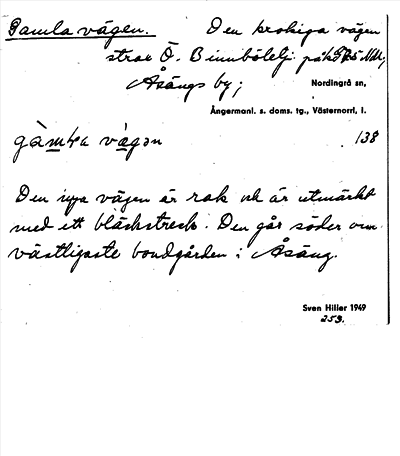 Gamla vägen. Den krokiga vägen
strax Ö. B innbölelj. på
Åsängs by; Nordingrå sn,
Ångermanl. s. doms. tg., Västernorrl. l.
138
Den nya vägen är rak och är utmärkt
med ett bläckstreck. Den går söder om
västligaste bondgården i Åsäng.
Sven Hiller 1949
253.